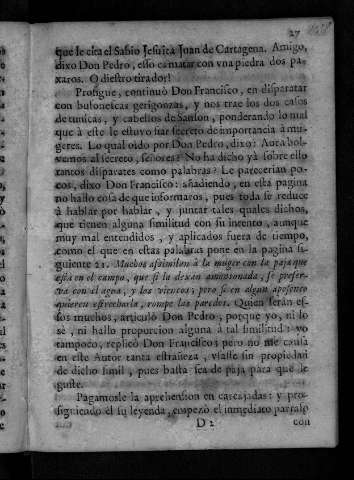 27
que le cita el Sabio Jesuita Juan de Cartagena. Amigo,
dixo Don Pedro, esso es matar con vna piedra dos pa-
xaros. O diestro tirador!
Prosigue, continuò Don Francisco, en disparatar
con bufonescas gerigonzas, y nos trae los dos casos
de tunicas, y cabellos de Sanson, ponderando lo mal
que à este le estuvo fiar secreto de importancia à mu-
geres. Lo qual oido por Don Pedro, dixo: Aora bol-
vemos al secreto, señores? No ha dicho yà sobre esso
tantos disparates como palabras? Le parecerian po-
cos, dixo Don Francisco: añadiendo, en esta pagina
no hallo cosa de que informaros, pues toda se reduce
à hablar por hablar, y juntar tales quales dichos,
que tienen alguna similitud con su intento, aunque
muy mal entendidos, y aplicados fuera de tiempo,
como el que en estas palabras pone en la pagina si-
guiente 21. Muchos assimilan à la muger con la paja que
està en el campo, que si la dexan amontonada, se preser-
va con el agua, y los vientos; pero si en algun aposento
quieren estrecharla, rompe las paredes. Quien seràn es-
sos muchos, articulò Don Pedro, porque yo, ni lo
sè, ni hallo proporcion alguna à tal similitud: yo
tampoco, replicò Don Francisco; pero no me causa
en este Autor tanta estrañeza, vsasse sin propiedad
de dicho simil, pues basta sea de paja para que le
guste.
Pagamosle la aprehension en carcajadas: y pro-
siguiendo èl su leyenda, empezò el inmediato parrafo
D 2 con